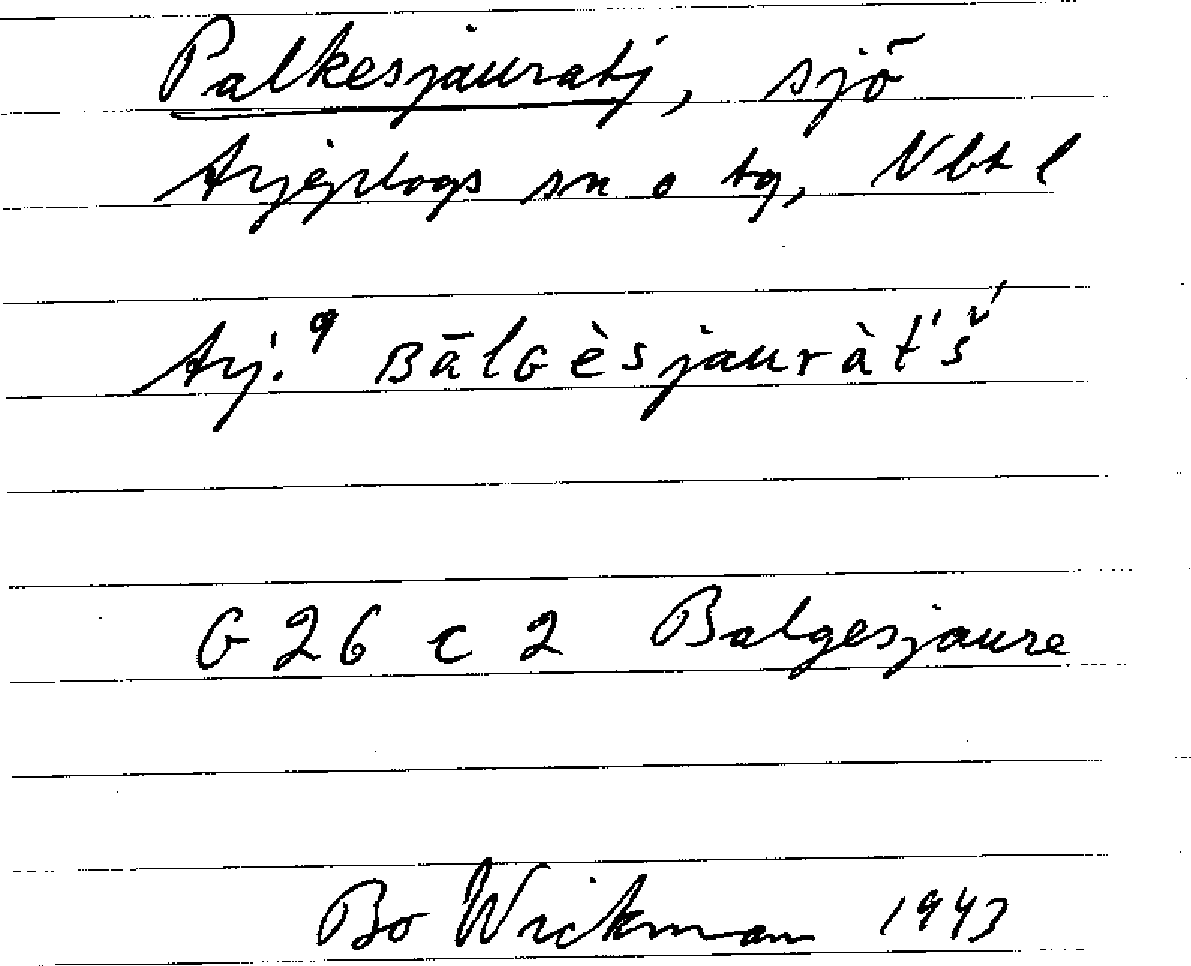 Palkesjauratj, sjö
Arjeplogs sn o tg, Vbt l
Arj. 9 Bālgèsjauràt́'š́
G 26 c 2 Balgesjaure
Bo Wickman 1943